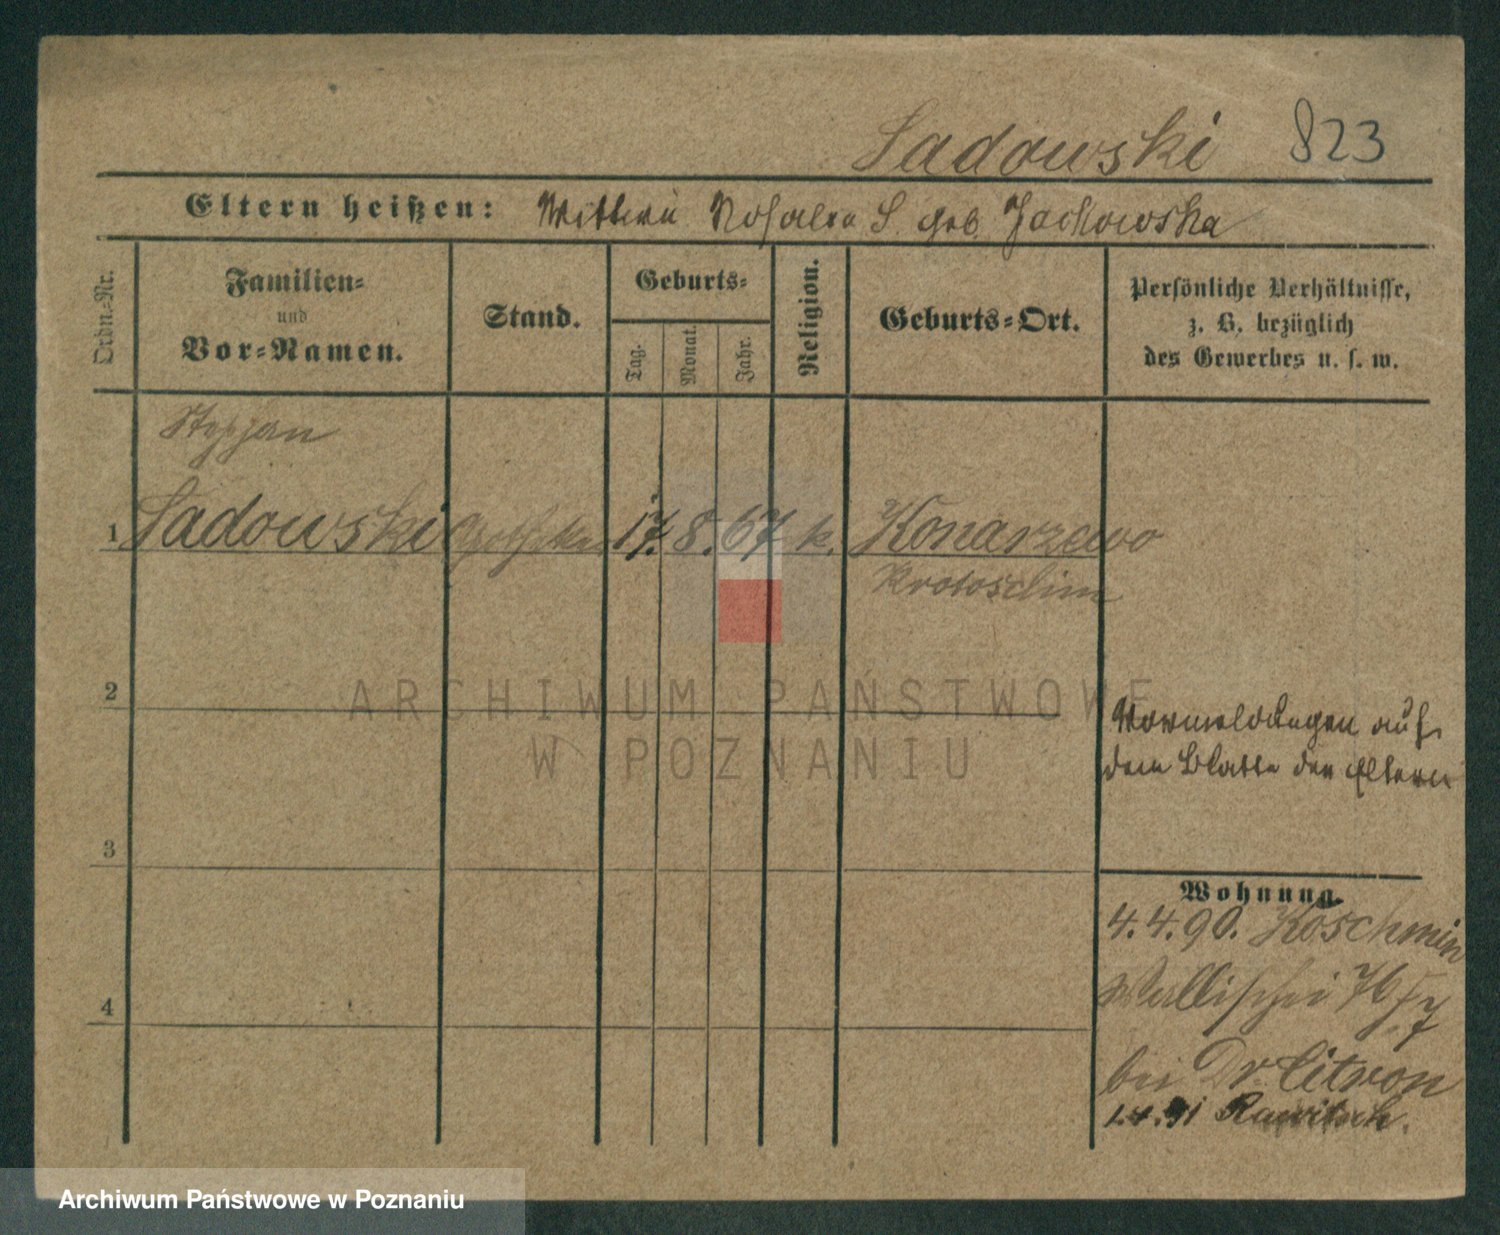 Sadowski 823
Eltern heißen: Wittwe Rosalia S. geb. Jackowska
Ordn.-Nr.
Familien-
und
Vor-Namen.
Stand.
Geburts-
Tag.
Monat.
Jahr.
Religion.
Geburts-Ort.
Persönliche Verhältnisse,
z. B. bezüglich
des Gewerbes u. s. w.
Stephan
1 Sadowski 17. 8. 67 k. Konarzewo
Krotoschin
2
Vormeldungen auf
dem Blatte der Eltern
3
Wohnung.
4.4.90. Koschmin
4
Wallischei 76
bei Dr. Citron
1.4.91 Rawitsch.
ARCHIWUM PAŃSTWOWE
W POZNANIU
Archiwum Państwowe w Poznaniu